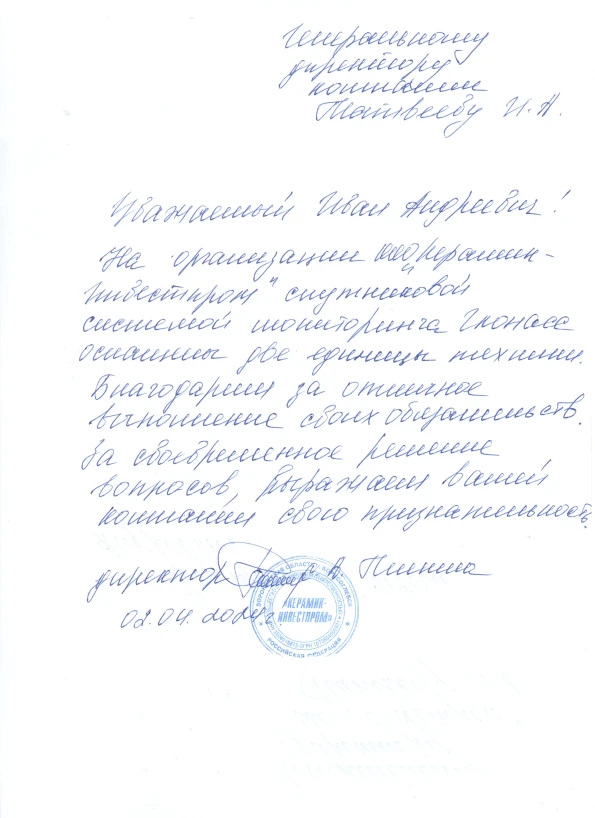 Генеральному
директору
компании
Матвееву И. А.
Уважаемый Иван Андреевич!
На организации ООО "Керамик-
Инвестпром" спутниковой
системой мониторинга Глонасс
оснащены две единицы техники.
Благодарим за отличное
выполнение своих обязательств.
За своевременное решение
вопросов, выражаем вашей
компании свою признательность.
директор А Пинина
02.04.2024г.
«КЕРАМИК-
ИНВЕСТПРОМ»
РОССИЙСКАЯ ФЕДЕРАЦИЯ